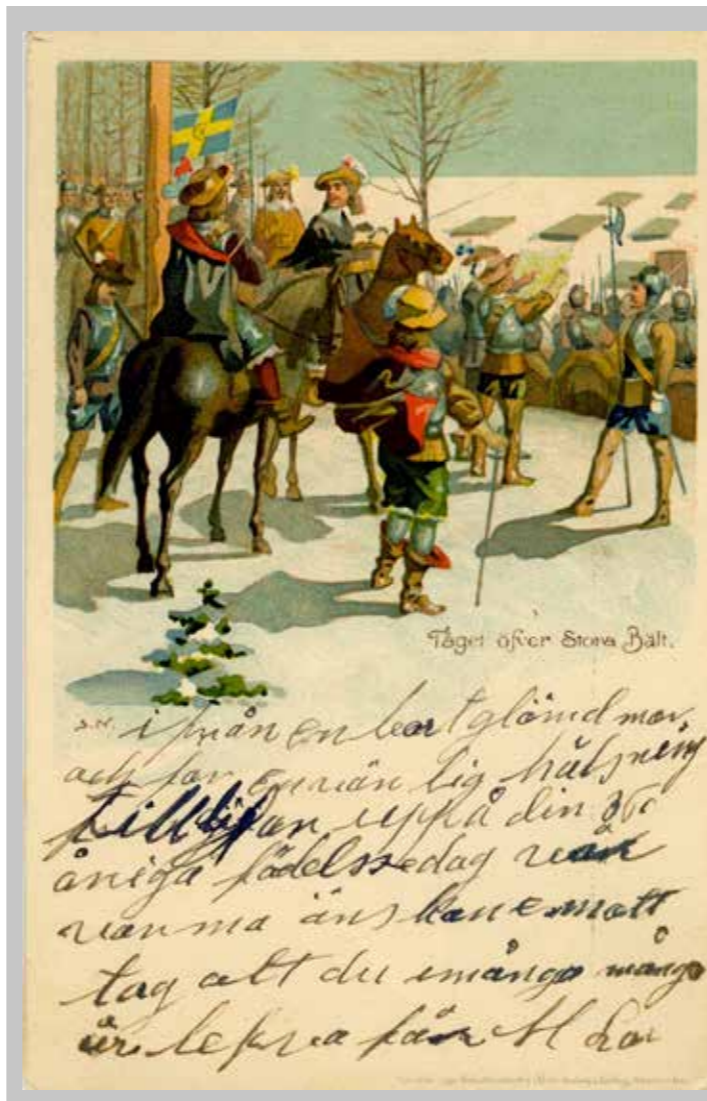 Tåget öfver Stora Bält.
S.N.
ifrån en bortglömd mor,
och far en vän lig hälsning
till uppå din 36
åriga födelssedag
varma önskan emott
tag att du många många
år lefva får